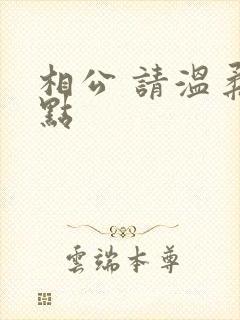 相公 請溫柔
點
雲端本尊